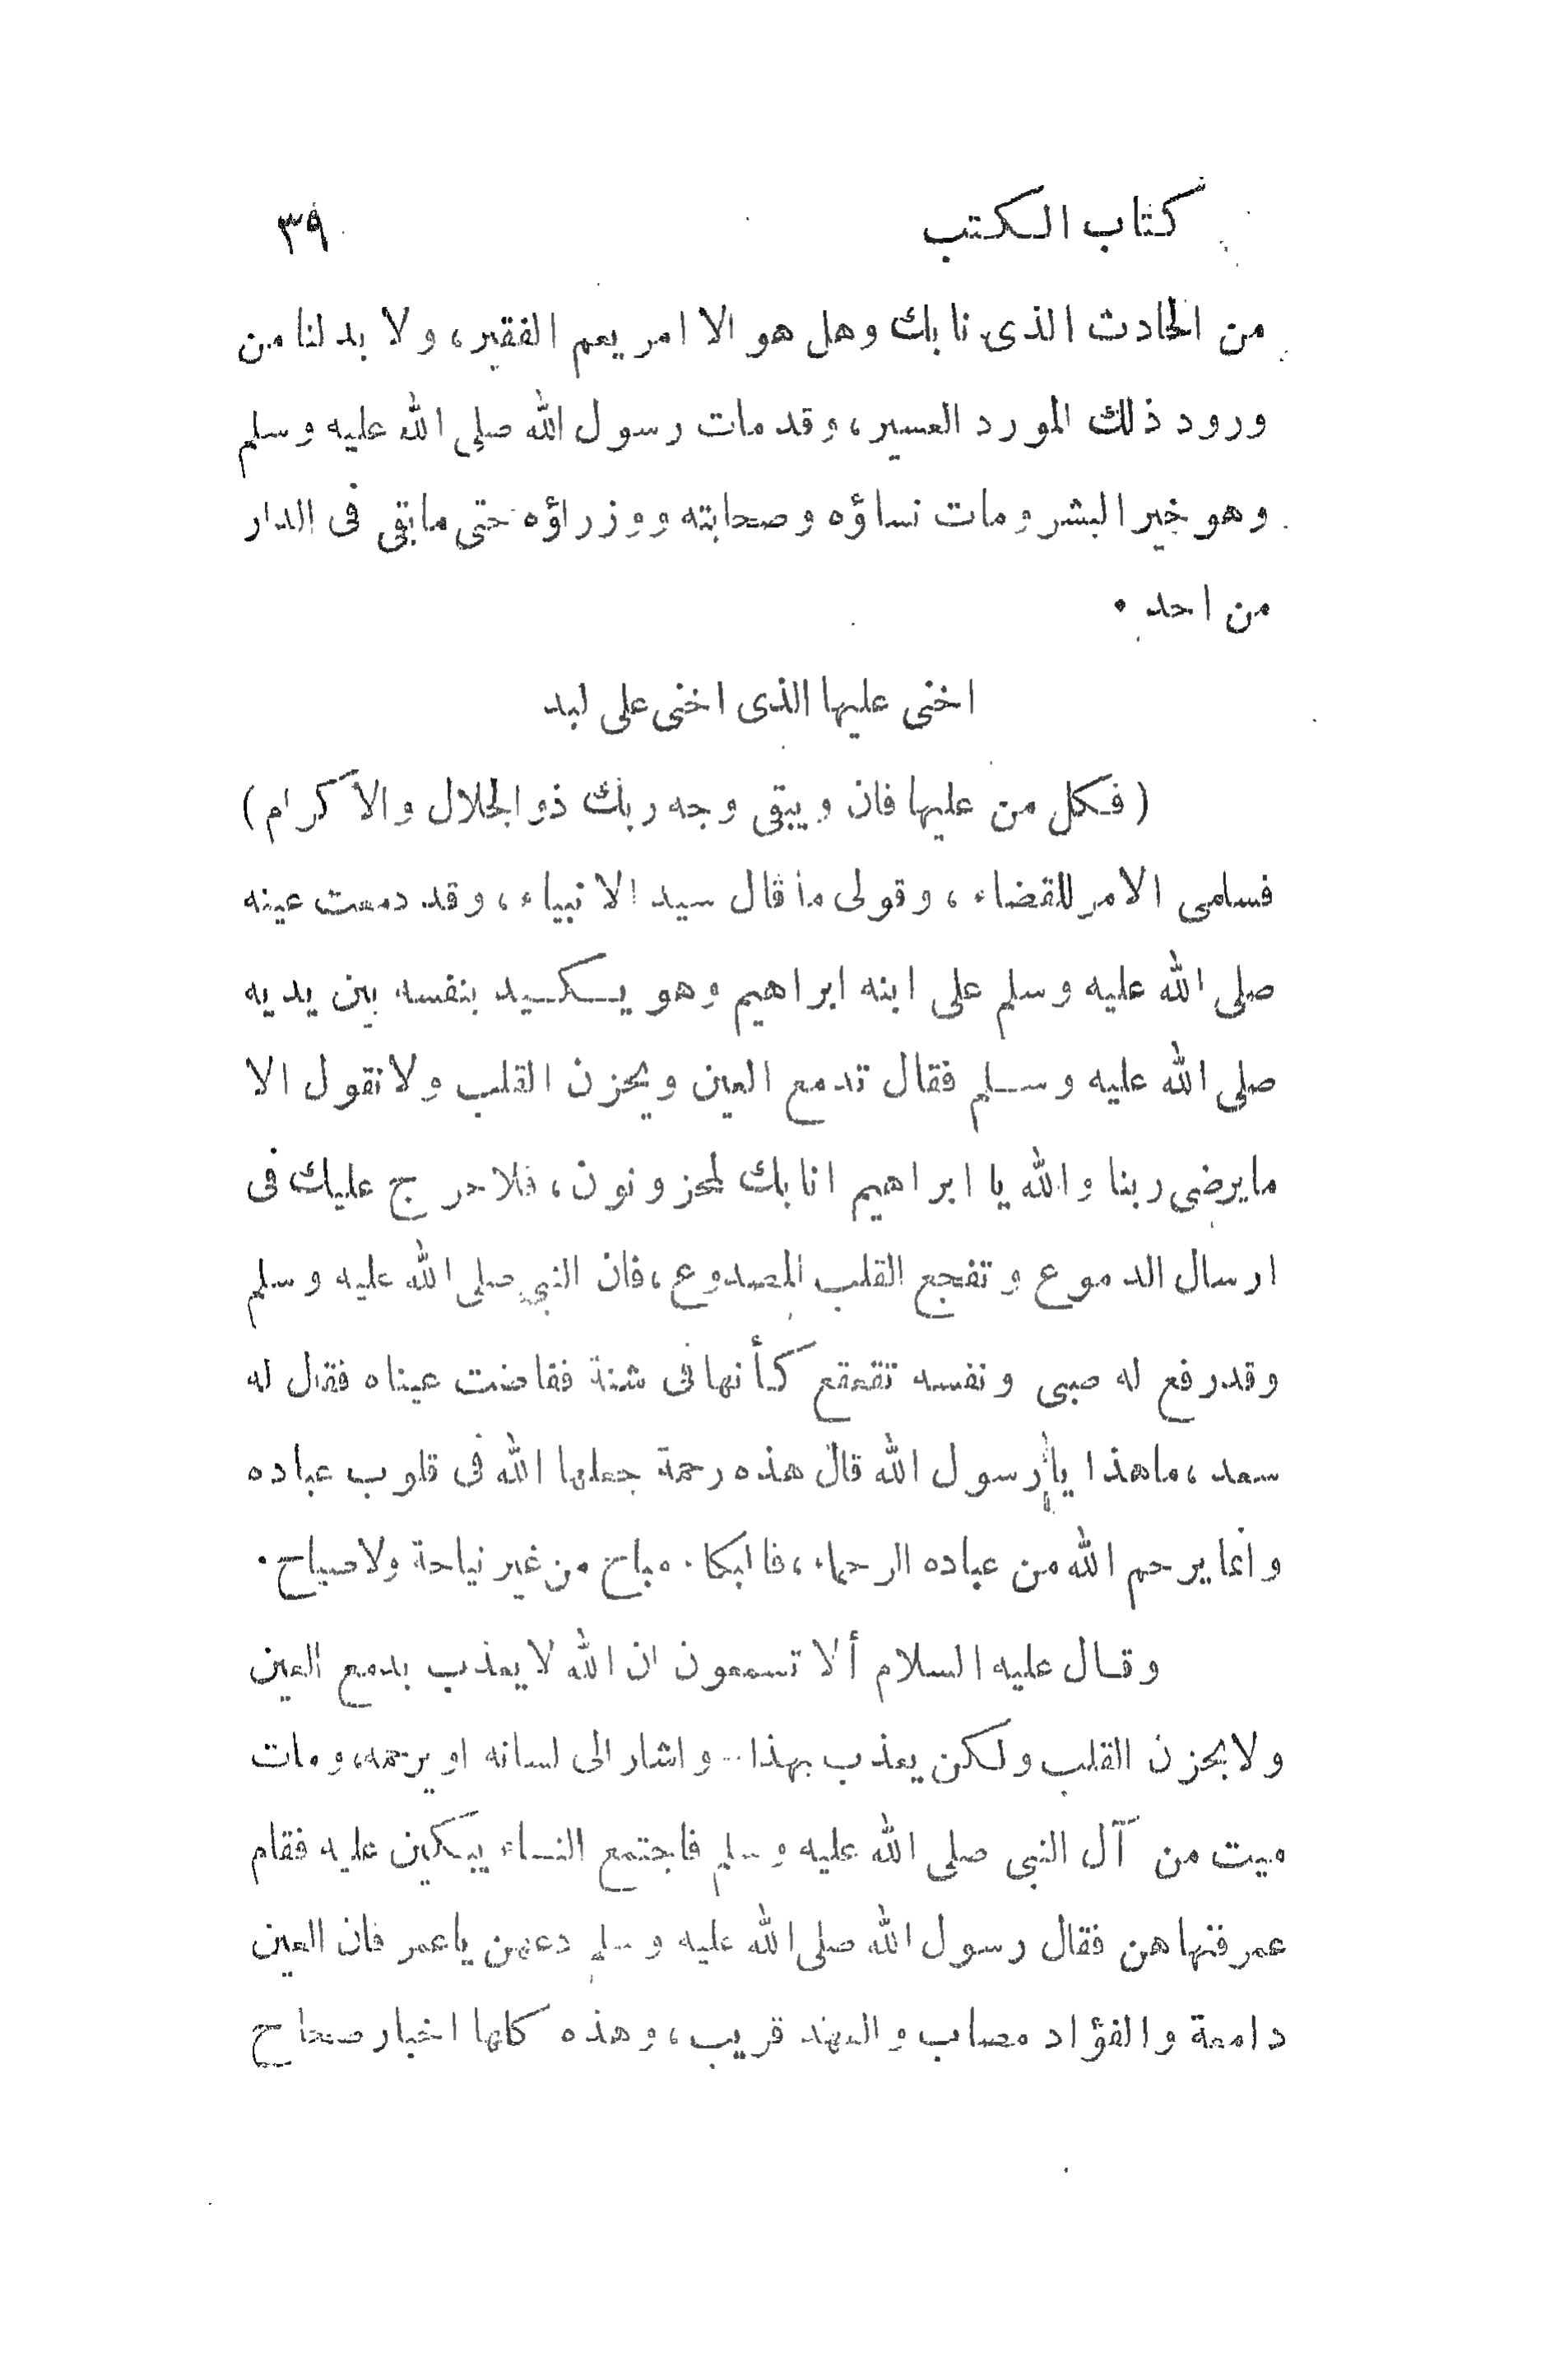 كتاب الكتب ٣٩
من الحادث الذى نابك وهل هو الا امر يعم الفقير، ولا بد لنا من
ورود ذلك المورد العسير، وقد مات رسول الله صلى الله عليه وسلم
وهو خير البشر ومات نساؤه وصحابته ووزراؤه حتى مابقى فى الدار
من احد •
اخنى عليها الذى اخنى على لبد
(فكل من عليها فان ويبقى وجه ربك ذو الجلال والاكرام)
فسلمى الامر للقضاء، وقولى ما قال سيد الانبياء، وقد دمعت عينه
صلى الله عليه وسلم على ابنه ابراهيم وهو يكيد بنفسه بين يديه
صلى الله عليه وسلم فقال تدمع العين ويحزن القلب ولا نقول الا
مايرضى ربنا والله يا ابراهيم انا بك لمحزونون، فلا حرج عليك فى
ارسال الدموع وتفجع القلب المصدوع، فان النبي صلى الله عليه وسلم
وقد رفع له صبى ونفسه تقعقع كأنها فى شنة ففاضت عيناه فقال له
سعد، ماهذا يا رسول الله قال هذه رحمة جعلها الله فى قلوب عباده
وانما يرحم الله من عباده الرحماء، فالبكاء مباح من غير نياحة ولا صياح.
وقال عليه السلام ألا تسمعون ان الله لا يعذب بدمع العين
ولا بحزن القلب ولكن يعذب بهذا -- واشار الى لسانه او يرحمه، ومات
ميت من آل النبي صلى الله عليه وسلم فاجتمع النساء يبكين عليه فقام
عمر فنهاهن فقال رسول الله صلى الله عليه وسلم دعهن ياعمر فان العين
دامعة والفؤاد مصاب والعهد قريب، وهذه كلها اخبار صحاح